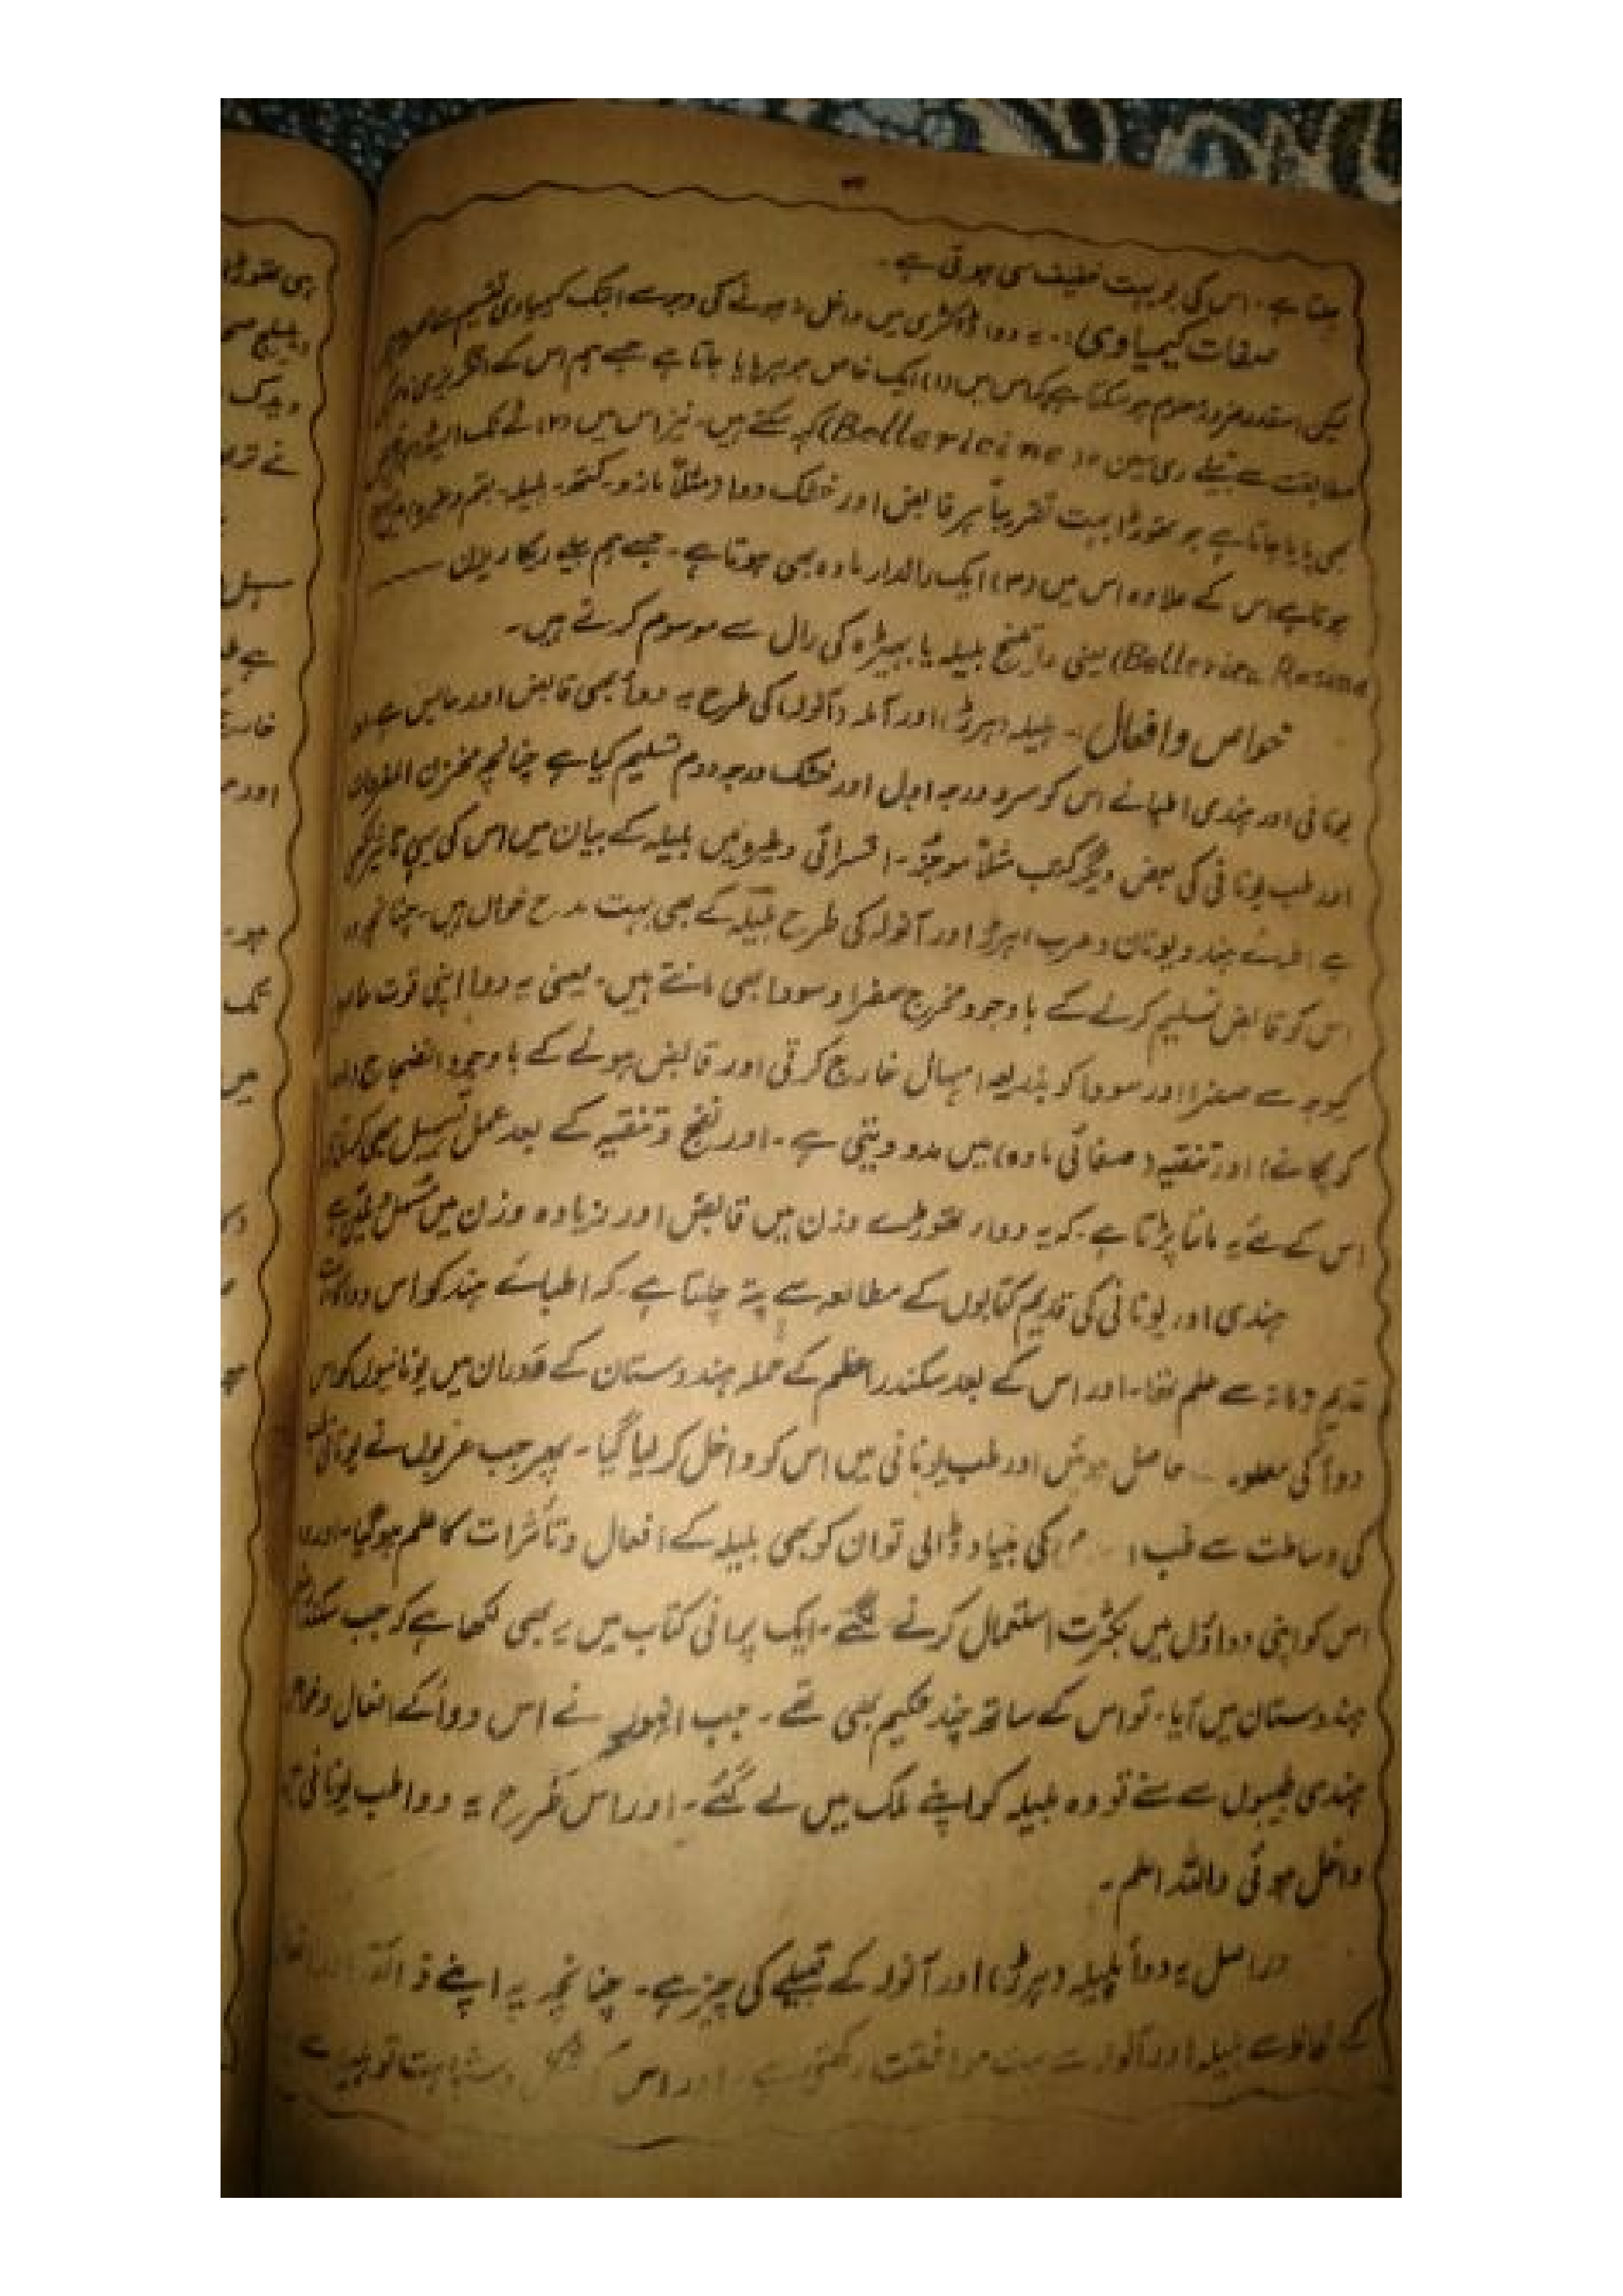 جلتا ہے۔ اس کی بو بہت خفیف سی ہوتی ہے۔
صفات کیمیاوی:۔ یہ دوا ڈاکٹری میں داخل نہ ہونے کی وجہ سے ابتک کیمیاوی تقسیم سے
لیکن اسقدر ضرور معلوم ہو سکتا ہے کہ اس میں (۱) ایک خاص جوہر پایا جاتا ہے جسے ہم اس کے انگریزی نام کی
مطابقت سے بیلے ری سین (Bellericine) کہہ سکتے ہیں۔ نیز اس میں (۲) ٹے نک ایسڈ
بھی پایا جاتا ہے جو تھوڑا بہت تقریباً ہر قابض اور خشک دوا (مثلاً مازو۔ کتھہ۔ ہلیلہ۔
ہوتا ہے اس کے علاوہ اس میں (۳) ایک رالدار مادہ بھی ہوتا ہے۔ جسے ہم بیلے ریکا ریزن
(Bellerica Resine یعنی راتینج بلیلہ یا بہیڑہ کی رال سے موسوم کرتے ہیں۔
خواص و افعال:۔ ہلیلہ (ہرڑ) اور آملہ (آنولہ) کی طرح یہ دوا بھی قابض اور حابس ہے
یونانی اور ہندی اطبا نے اس کو سرد درجہ اول اور خشک درجہ دوم تسلیم کیا ہے چنانچہ مخزن المفردات
اور طب یونانی کی بعض دیگر کتب مثلاً موجز۔ اقسرائی وغیرہ میں بلیلہ کے بیان میں اس کی یہی تاثیر لکھی
ہے اطبائے ہند و یونان و عرب ہرڑ اور آنولہ کی طرح بلیلہ کے بھی بہت مدح خواں ہیں۔ چنانچہ وہ
اس کو قابض تسلیم کرنے کے باوجود مخرج صفرا و سودا بھی مانتے ہیں۔ یعنی یہ دوا اپنی قوت
کیوجہ سے صفرا اور سودا کو بذریعہ اسہال خارج کرتی اور قابض ہونے کے باوجود انضاج (مادہ
کو پکانے) اور تنقیہ (صفائی مادہ) میں مدد دیتی ہے۔ اور نضج و تنقیہ کے بعد عمل تسہیل بھی کرتی
اس کے لئے یہ ماننا پڑتا ہے۔ کہ یہ دوا تھوڑے وزن میں قابض اور زیادہ وزن میں مسہل و ملین ہے
ہندی اور یونانی کی قدیم کتابوں کے مطالعہ سے پتہ چلتا ہے۔ کہ اطبائے ہند کو اس دوا کا
قدیم زمانہ سے علم تھا۔ اور اس کے بعد سکندر اعظم کے حملہ ہندوستان کے دوران میں یونانیوں کو اس
دوا کی حاصل ہوئیں اور طب یونانی میں اس کو داخل کر لیا گیا۔ پھر جب عربوں نے یونانی
کی وساطت سے طب کی بنیاد ڈالی تو ان کو بھی بلیلہ کے افعال و تاثرات کا علم ہو گیا۔ اور
اس کو اپنی دواؤں میں بکثرت استعمال کرنے لگے۔ ایک پرانی کتاب میں یہ بھی لکھا ہے کہ جب سکندر
ہندوستان میں آیا۔ تو اس کے ساتھ چند حکیم بھی تھے۔ جب انہوں نے اس دوا کے افعال و خواص
ہندی طبیبوں سے سنے تو وہ بلیلہ کو اپنے ملک میں لے گئے۔ اور اس طرح یہ دوا طب یونانی میں
داخل ہوئی واللہ اعلم۔
دراصل یہ دوا ہلیلہ (ہرڑ) اور آنولہ کے قبیلے کی چیز ہے۔ چنانچہ یہ اپنے ذائقہ
کے لحاظ سے ہلیلہ اور آنولہ سے بہت موافقت رکھتی ہے۔ اور اس